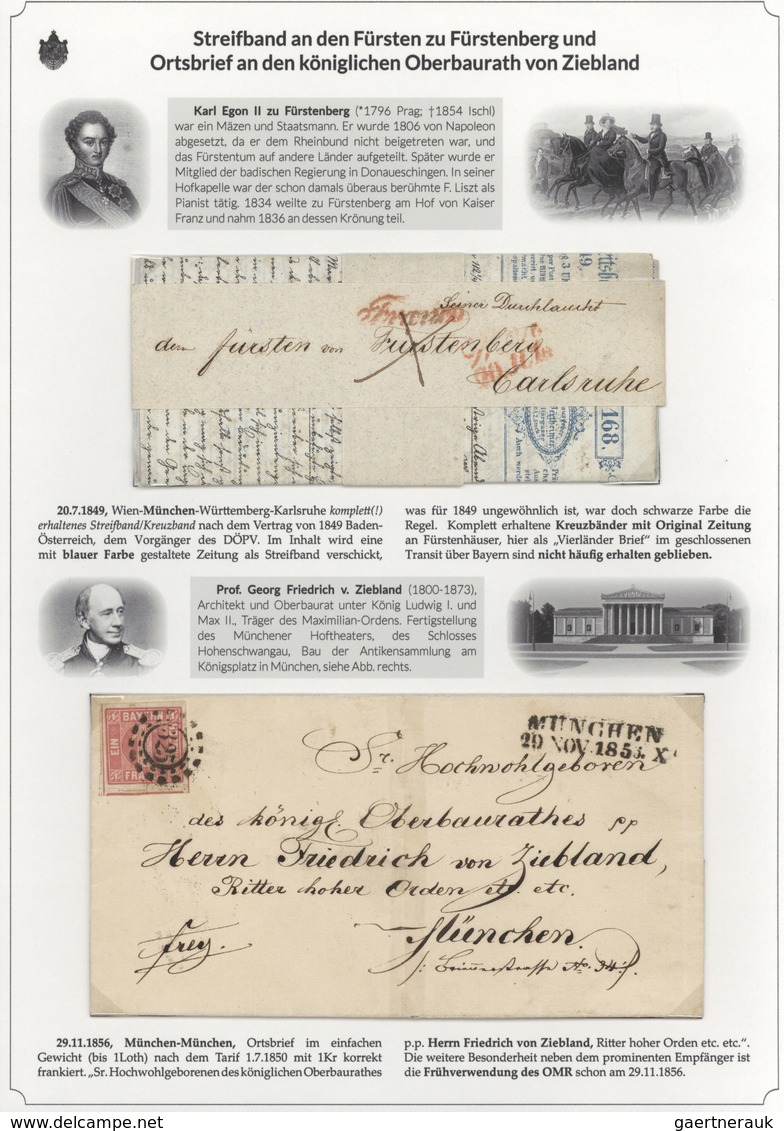 Streifband an den Fürsten zu Fürstenberg und
Ortsbrief an den königlichen Oberbaurath von Ziebland
Karl Egon II zu Fürstenberg (*1796 Prag; †1854 Ischl)
war ein Mäzen und Staatsmann. Er wurde 1806 von Napoleon
abgesetzt, da er dem Rheinbund nicht beigetreten war, und
das Fürstentum auf andere Länder aufgeteilt. Später wurde er
Mitglied der badischen Regierung in Donaueschingen. In seiner
Hofkapelle war der schon damals überaus berühmte F. Liszt als
Pianist tätig. 1834 weilte zu Fürstenberg am Hof von Kaiser
Franz und nahm 1836 an dessen Krönung teil.
Franco
Seiner Durchlaucht
dem Fürsten von Fürstenberg
Carlsruhe
168.
20.7.1849, Wien-München-Württemberg-Karlsruhe komplett(!)
erhaltenes Streifband/Kreuzband nach dem Vertrag von 1849 Baden-
Österreich, dem Vorgänger des DÖPV. Im Inhalt wird eine
mit blauer Farbe gestaltete Zeitung als Streifband verschickt,
was für 1849 ungewöhnlich ist, war doch schwarze Farbe die
Regel. Komplett erhaltene Kreuzbänder mit Original Zeitung
an Fürstenhäuser, hier als „Vierländer Brief" im geschlossenen
Transit über Bayern sind nicht häufig erhalten geblieben.
Prof. Georg Friedrich v. Ziebland (1800-1873),
Architekt und Oberbaurat unter König Ludwig I. und
Max II., Träger des Maximilian-Ordens. Fertigstellung
des Münchener Hoftheaters, des Schlosses
Hohenschwangau, Bau der Antikensammlung am
Königsplatz in München, siehe Abb. rechts.
BAYERN
EIN
325
MÜNCHEN
29 NOV. 185
Sr. Hochwohlgeboren
des königl. Oberbaurathes pp
Herrn Friedrich von Ziebland,
Ritter hoher Orden etc. etc.
München.
frey.
No. 34
29.11.1856, München-München, Ortsbrief im einfachen
Gewicht (bis 1Loth) nach dem Tarif 1.7.1850 mit 1Kr korrekt
frankiert. „Sr. Hochwohlgeborenen des königlichen Oberbaurathes
p.p. Herrn Friedrich von Ziebland, Ritter hoher Orden etc. etc.".
Die weitere Besonderheit neben dem prominenten Empfänger ist
die Frühverwendung des OMR schon am 29.11.1856.
www.delcampe.net
gaertnerauk